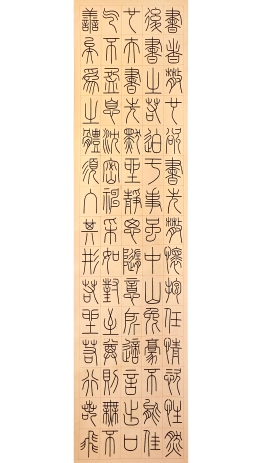 書者散也欲書先散懷抱任情恣性然
後書之若迫于事雖中山兔豪不能佳
也夫書先默坐靜思隨意所適言出口
气不盈息沈密神采如對至尊則無不
善矣為之體須入其形若坐若行若飛